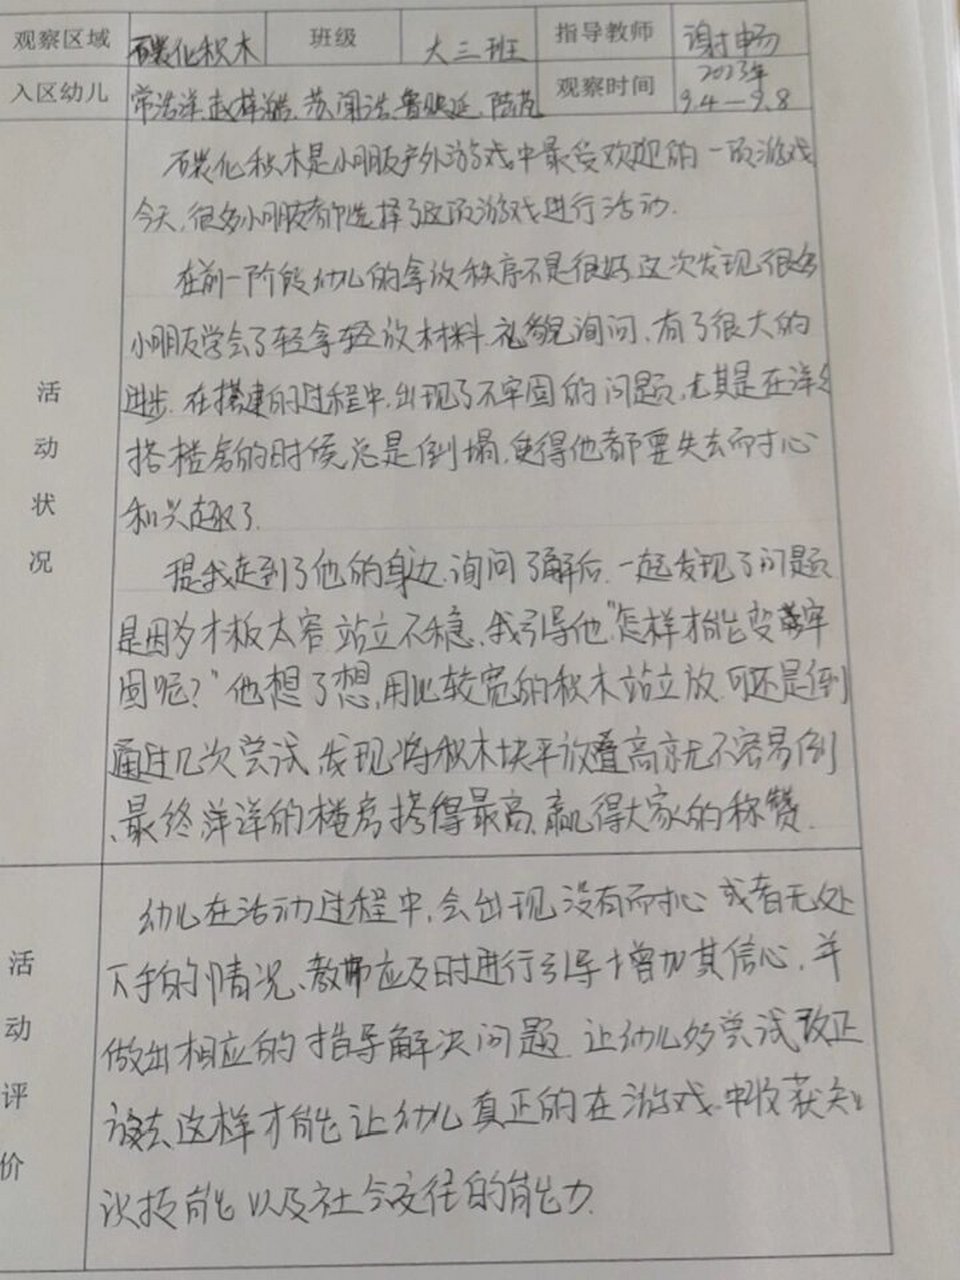 观察区域 碳化积木 班级 大三班 指导教师 谢畅
入区幼儿 常浩洋、赵梓涵、苏闻浩、鲁映延、陆芃 观察时间 2023年9.4—9.8
活动状况
碳化积木是小朋友户外游戏中最受欢迎的一项游戏
今天,很多小朋友都选择了这项游戏进行活动.
在前一阶段幼儿的拿放秩序不是很好,这次发现很多
小朋友学会了轻拿轻放材料.礼貌询问.有了很大的
进步.在搭建的过程中.出现了不牢固的问题,尤其是在洋洋
搭楼房的时候总是倒塌.使得他都要失去耐心
和兴趣了.
是我走到了他的身边.询问了解后.一起发现了问题
是因为木板太窄站立不稳.我引导他“怎样才能变牢
固呢?”他想了想,用比较宽的积木站立放.可还是倒
通过几次尝试.发现将积木块平放叠高就不容易倒
.最终洋洋的楼房搭得最高.赢得大家的称赞.
活动评价
幼儿在活动过程中.会出现没有耐心或者无处
下手的情况、教师应及时进行引导增加其信心.并
做出相应的指导解决问题.让幼儿多尝试改正
该去.这样才能让幼儿真正的在游戏中收获知
识技能以及社会交往的能力.